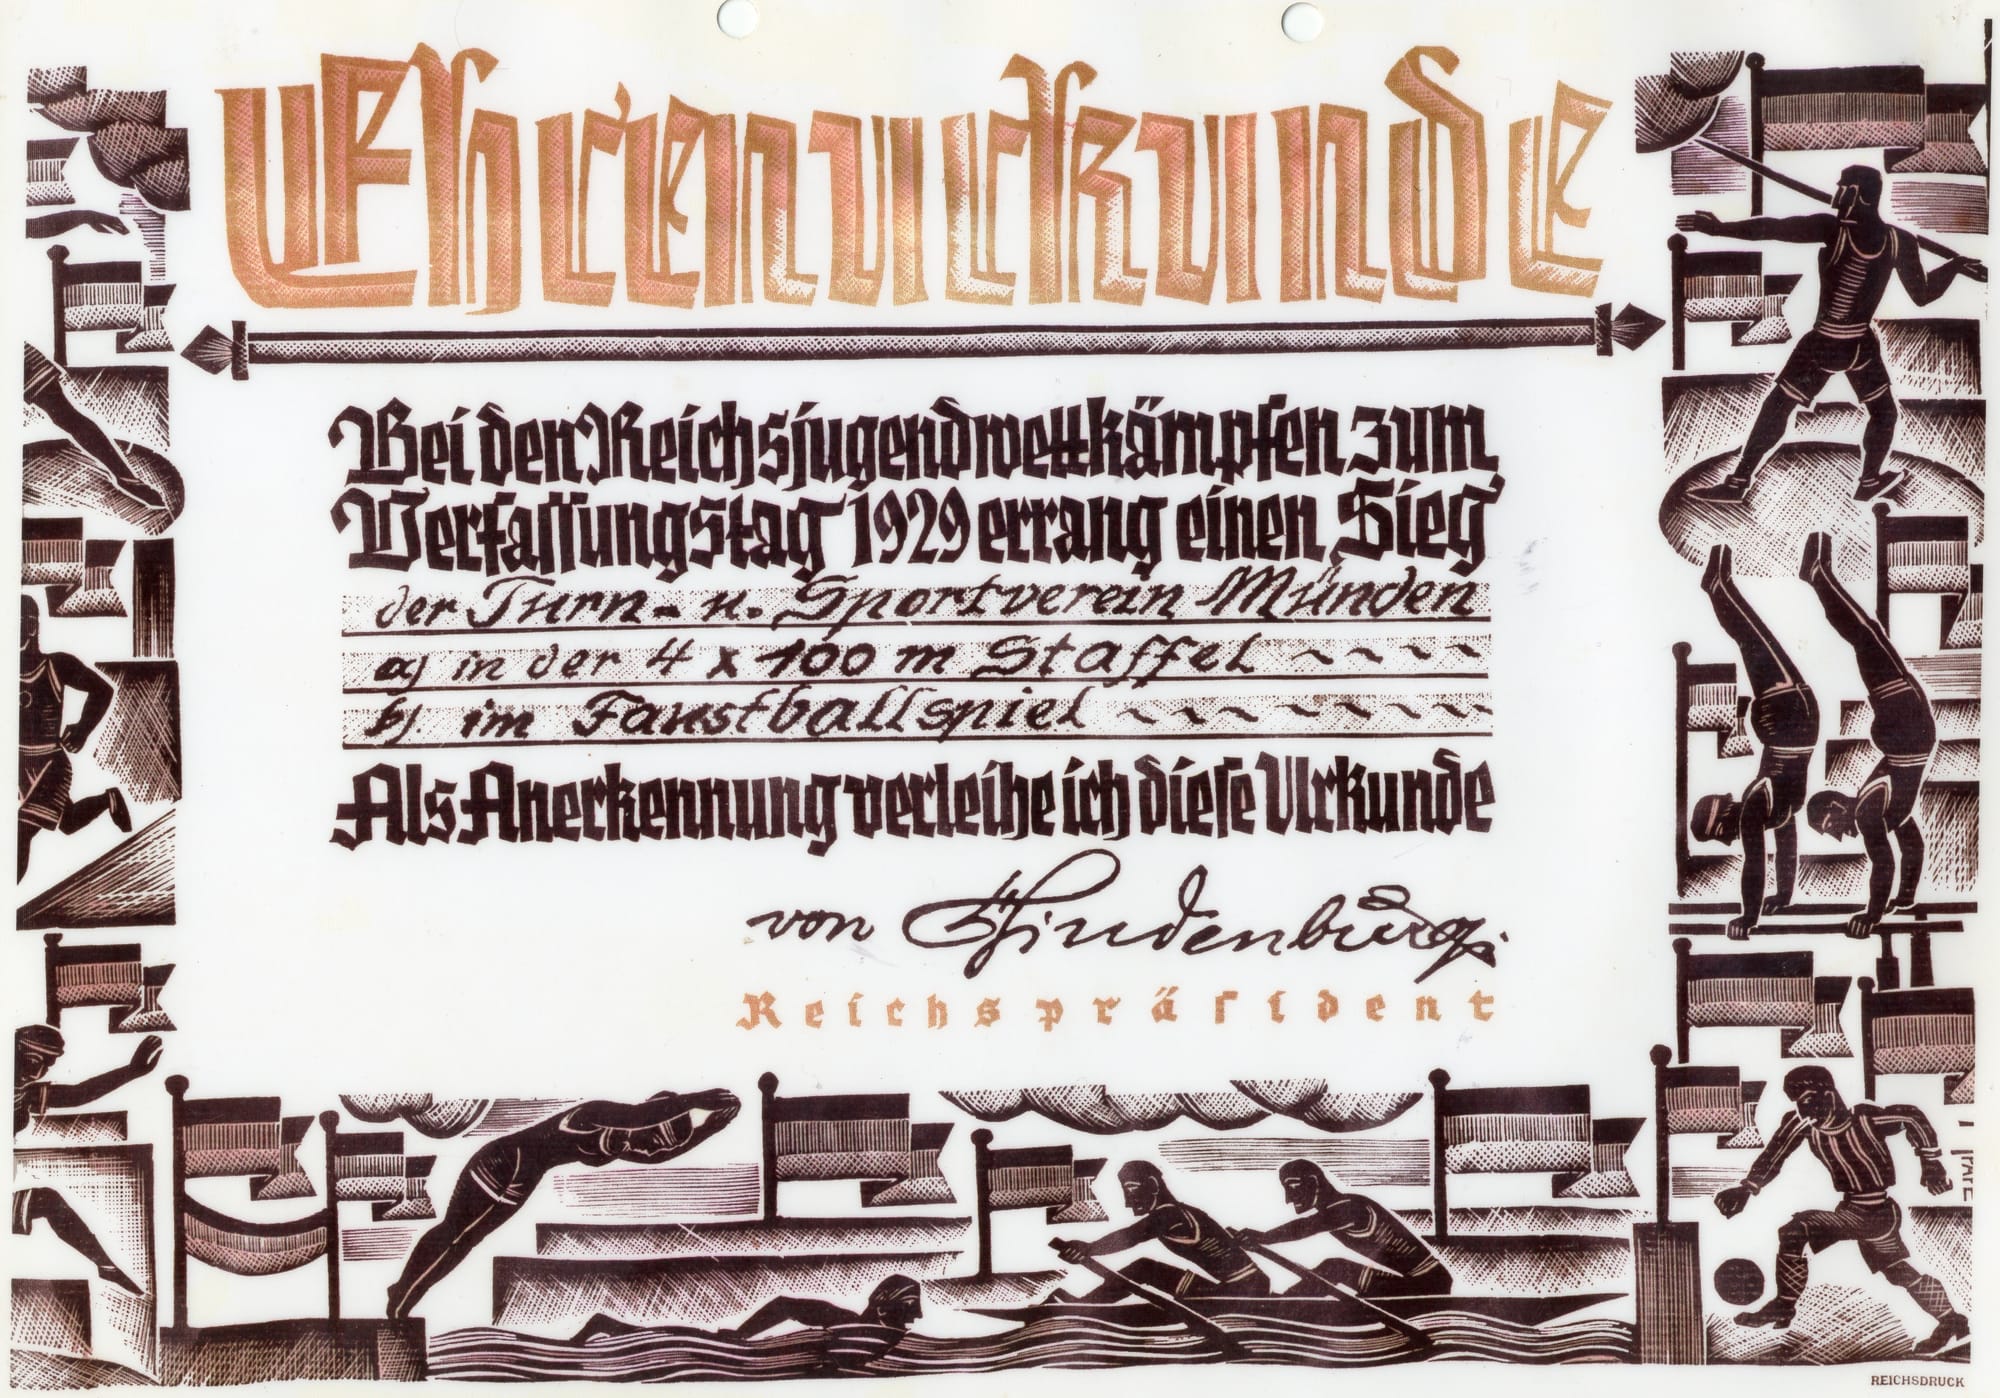 Ehrenurkunde
Bei den Reichsjugendwettkämpfen zum
Verfaſſungstag 1929 errang einen Sieg
der Turn- u. Sportverein Münden
a) in der 4 x 100 m Staffel
b). im Faustballspiel
Als Anerkennung verleihe ich dieſe Urkunde
von Hindenburg.
Reichspräſident
REICHSDRUCK